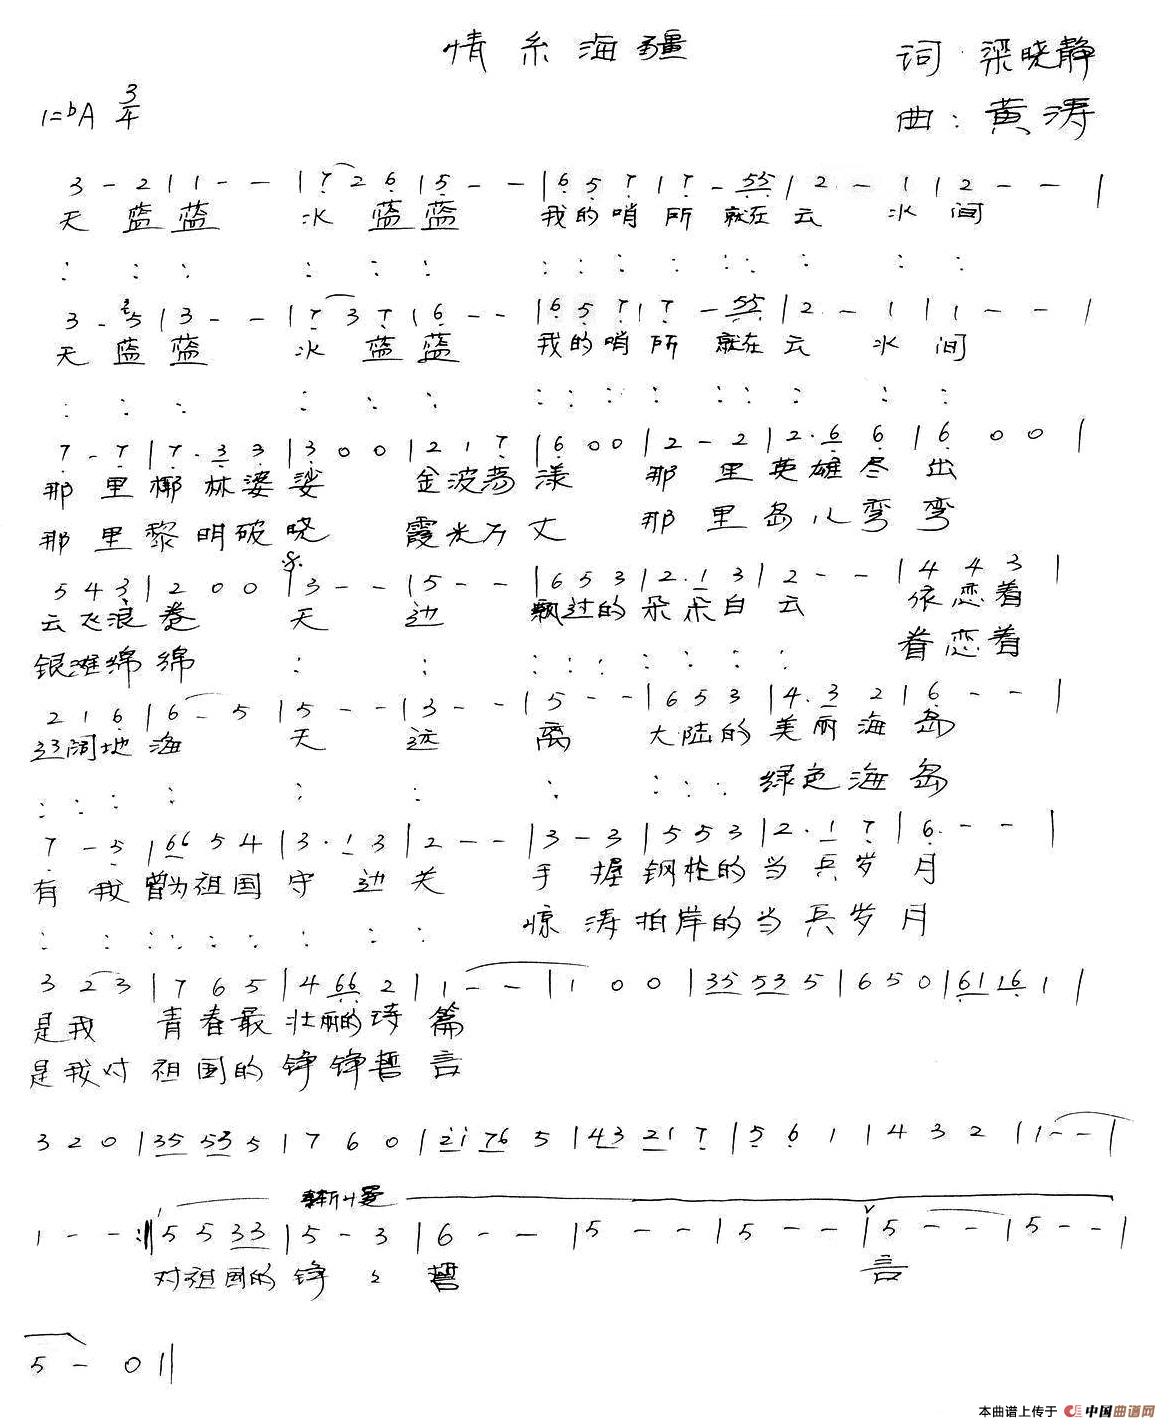 情系海疆
词·梁晓静
1=bA 3/4
曲：黄涛
3 - 2 | 1 - - | 7 2 6 | 5 - - | 6 5 7 | 7 - 55 | 2 - 1 | 2 - - |
天 蓝蓝 水 蓝蓝 我的哨所 就在云 水间
: : : : : : : : : : : : : : :
3 - 5 | 3 - - | 7 3 7 | 6 - - | 6 5 7 | 7 - 55 | 2 - 1 | 1 - - |
天 蓝蓝 水 蓝蓝 我的哨所 就在云 水间
: : : : : : : : : : : : : : :
7 - 7 | 7 · 3 3 | 3 0 0 | 2 1 7 | 6 0 0 | 2 - 2 | 2 · 6 6 | 6 0 0 |
那里椰林婆娑 金波荡漾 那里英雄尽出
那里黎明破晓 霞光万丈 那里岛儿弯弯
5 4 3 | 2 0 0 | 3 - - | 5 - - | 6 5 3 | 2 · 1 3 | 2 - - | 4 4 3 |
云飞浪卷 天 边 飘过的朵朵白云 依恋着
银滩绵绵 : : : : : : : : : 眷恋着
2 1 6 | 6 - 5 | 5 - - | 3 - - | 5 - - | 6 5 3 | 4 · 3 2 | 6 - - |
辽阔地海 天 远 离 大陆的美丽海岛
: : : : : : : : : : 绿色海岛
7 - 5 | 66 5 4 | 3 · 1 3 | 2 - - | 3 - 3 | 5 5 3 | 2 · 1 7 | 6 · - - |
有我曾为祖国守边关 手握钢枪的当兵岁月
: : : : : : : : : 惊涛拍岸的当兵岁月
3 2 3 | 7 6 5 | 4 66 2 | 1 - - | 1 0 0 | 35 53 5 | 6 5 0 | 61 16 1 |
是我 青春最壮丽的诗篇
是我对祖国的铮铮誓言
3 2 0 | 35 53 5 | 7 6 0 | 2i 76 5 | 43 21 7 | 5 6 1 | 4 3 2 | 1 - - |
渐慢
1 - - :‖ 5 5 33 | 5 - 3 | 6 - - | 5 - - | 5 - - | 5 - - | 5 - - |
对祖国的铮 誓 言
5 - 0 ‖
本曲谱上传于 中国曲谱网